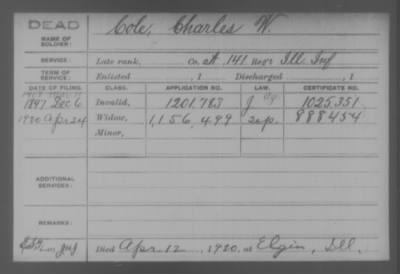 DEAD
Cole, Charles W.
NAME OF SOLDIER:
SERVICE: Late rank, Co. A. 141 Reg't Ill. Inf
TERM OF SERVICE: Enlisted , 1 Discharged , 1
DATE OF FILING. CLASS. APPLICATION NO. LAW. CERTIFICATE NO.
1897 Dec 6 Invalid, 1201.783 1025.351
1920 Apr 24 Widow, 1,156,499 888454
Minor,
ADDITIONAL SERVICES:
REMARKS:
Died Apr. 12, 1920, at Elgin, Ill.